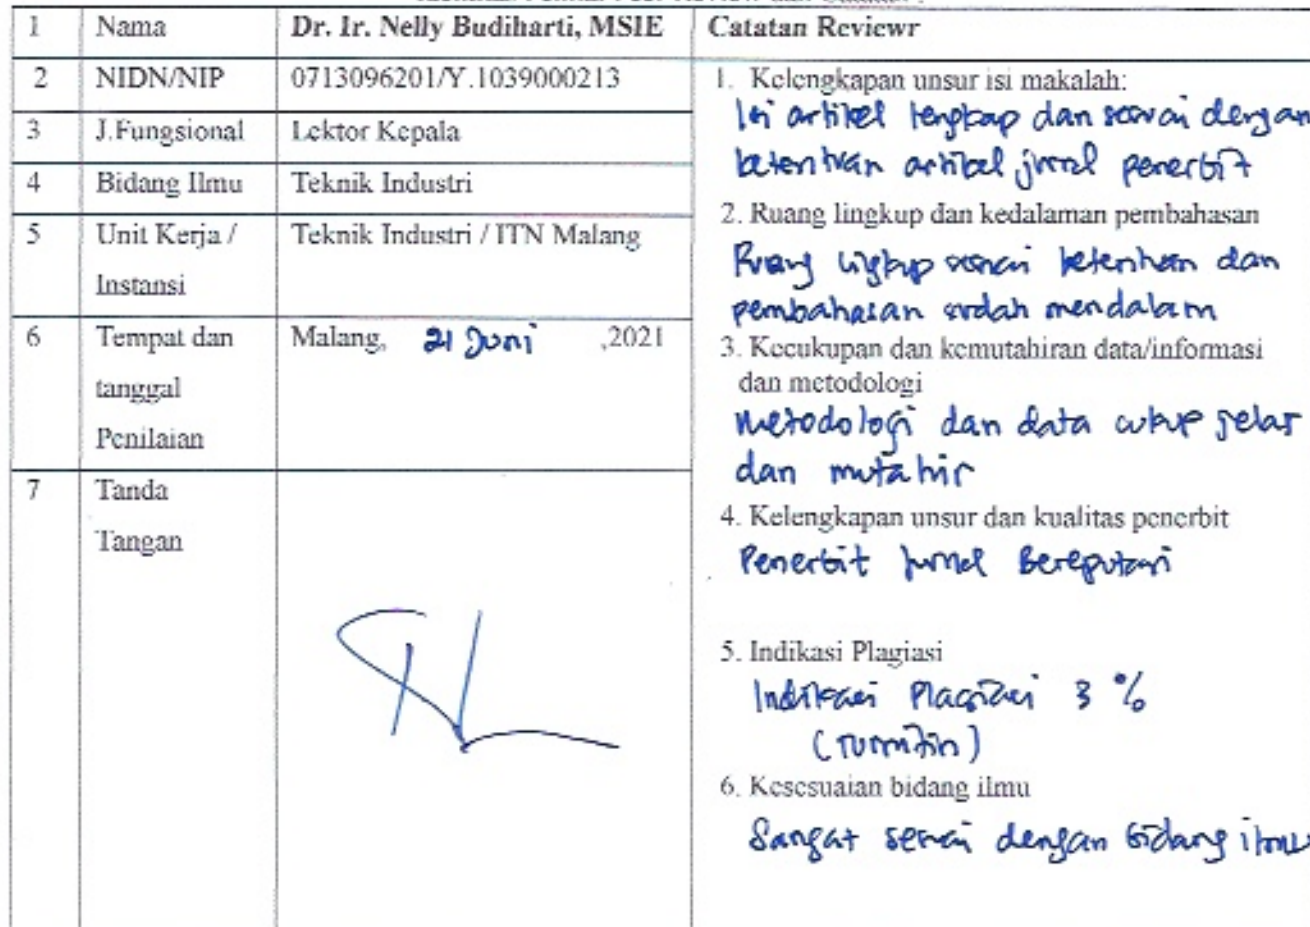 1 Nama Dr. Ir. Nelly Budiharti, MSIE
2 NIDN/NIP 0713096201/Y.1039000213
3 J.Fungsional Lektor Kepala
4 Bidang Ilmu Teknik Industri
5 Unit Kerja / Teknik Industri / ITN Malang
Instansi
6 Tempat dan Malang, 21 Juni ,2021
tanggal
Penilaian
7 Tanda
Tangan
Catatan Reviewr
1. Kelengkapan unsur isi makalah:
Isi artikel lengkap dan sesuai dengan
ketentuan artikel jurnal penerbit
2. Ruang lingkup dan kedalaman pembahasan
Ruang lingkup sesuai ketentuan dan
pembahasan sudah mendalam
3. Kecukupan dan kemutahiran data/informasi
dan metodologi
Metodologi dan data cukup jelas
dan mutahir
4. Kelengkapan unsur dan kualitas penerbit
Penerbit Jurnal Bereputasi
5. Indikasi Plagiasi
Indikasi Plagiasi 3 %
(Turnitin)
6. Kesesuaian bidang ilmu
Sangat sesuai dengan bidang ilmu